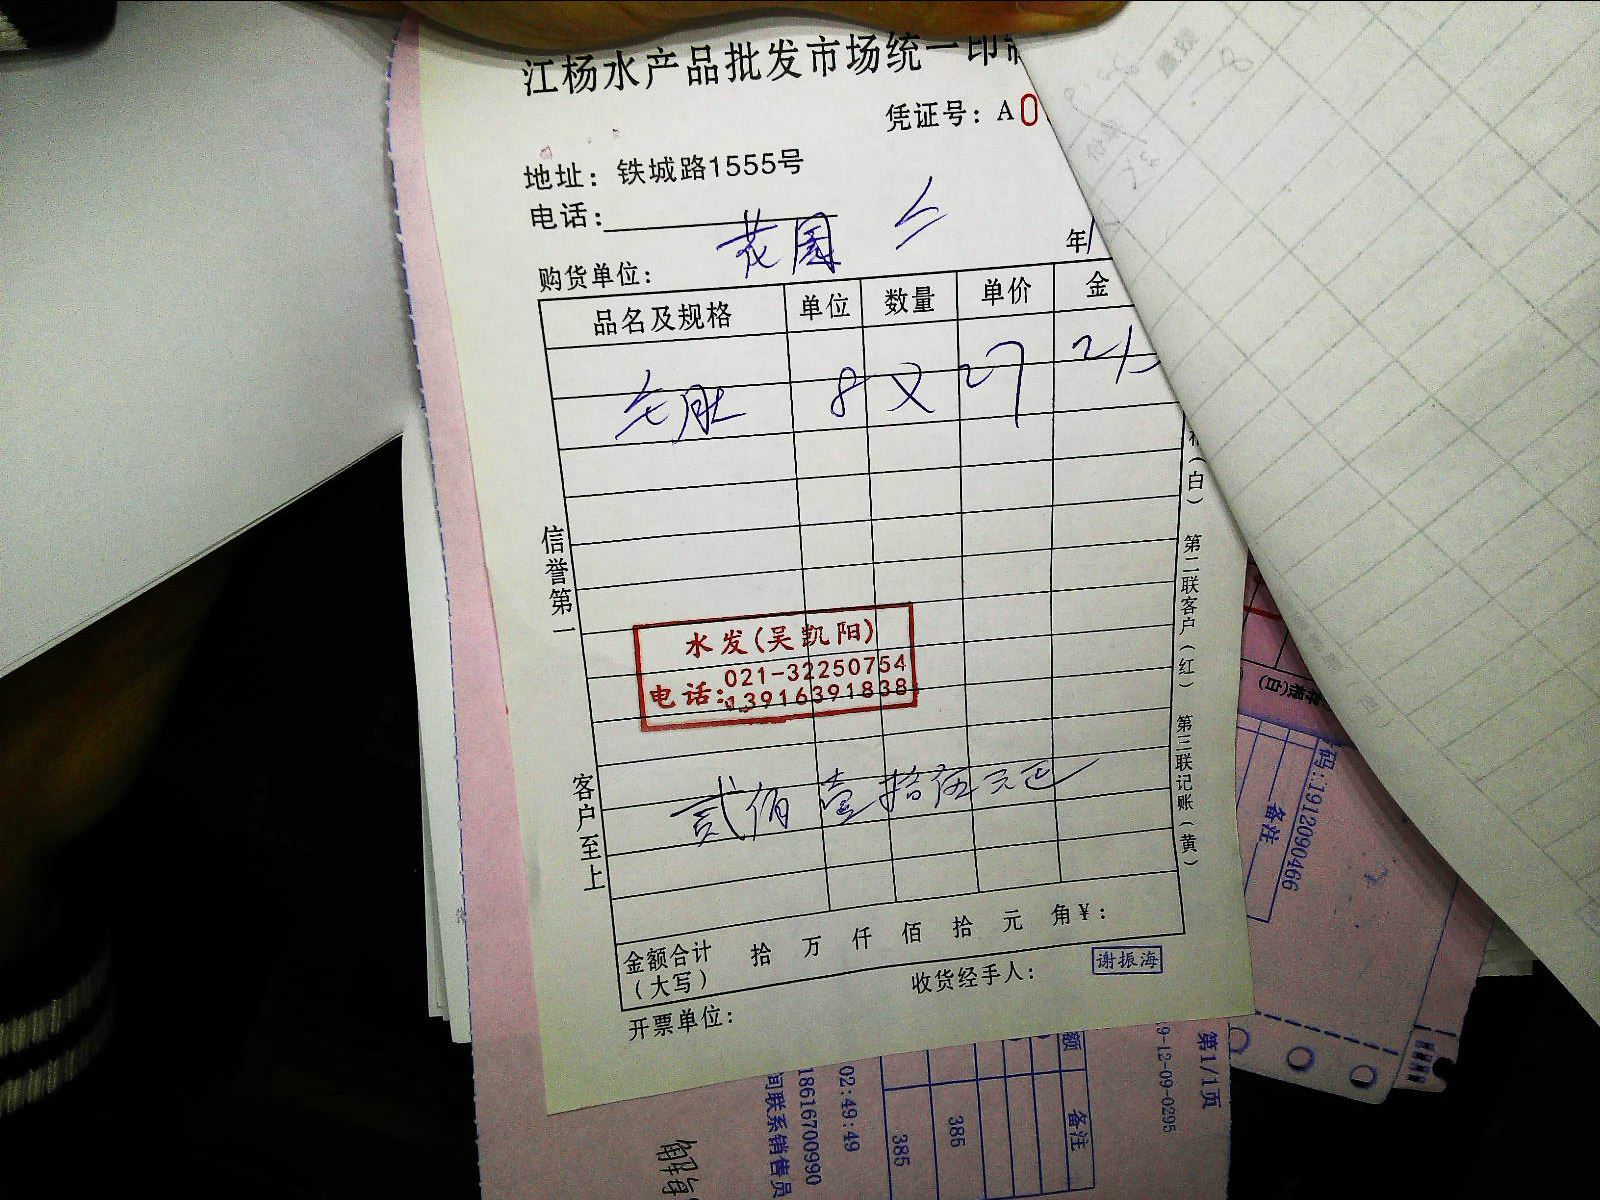 江杨水产品批发市场统一印
凭证号：A0
地址：铁城路1555号
电话：
购货单位：花园
年
品名及规格 单位 数量 单价 金
毛肚 8 27 21
信誉第一
水发(吴凯阳)
电话：021-32250754
13916391838
贰佰壹拾伍元正
客户至上
(白) 第二联客户(红) 第三联记账(黄)
金额合计(大写) 拾 万 仟 佰 拾 元 角 ¥：
收货经手人：
谢振海
开票单位：
存根(白)
码：1912090466
备注
第1/1页
19-12-09-0295
额 备注
385
385
02:49:49
18616700990
间联系销售员